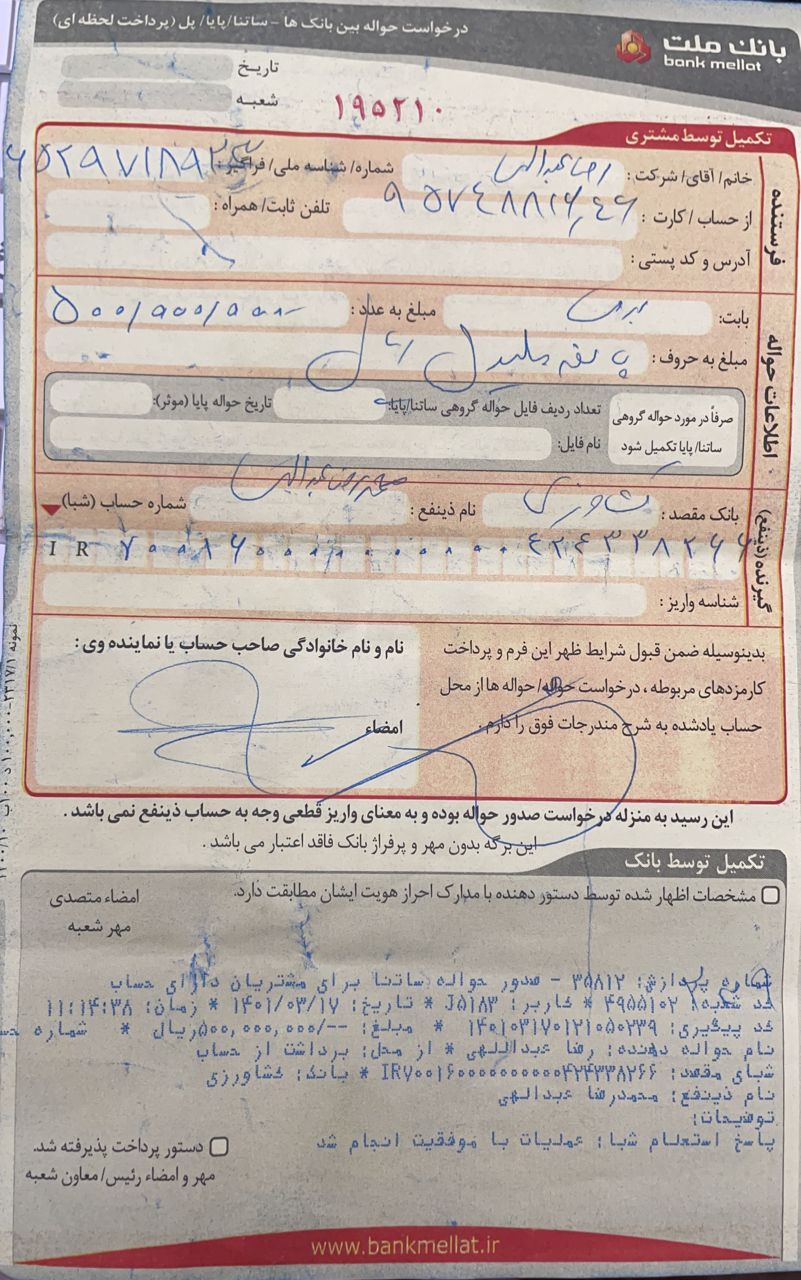 درخواست حواله بین بانک ها - ساتنا/پایا/ پل (پرداخت لحظه ای)
بانک ملت
bank mellat
تاریخ
شعبه
۱۹۵۲۱۰
تکمیل توسط مشتری
فرستنده
خانم/ آقای/ شرکت : رضا عبدالهی شماره/ شناسه ملی/ فراگیر :
از حساب / کارت : تلفن ثابت/ همراه :
آدرس و کد پستی :
اطلاعات حواله
بابت: مبلغ به عدد : ۵۰۰/۰۰۰/۰۰۰
مبلغ به حروف : پانصد میلیون ریال
صرفاً در مورد حواله گروهی ساتنا/ پایا تکمیل شود
تعداد ردیف فایل حواله گروهی ساتنا/پایا: تاریخ حواله پایا (موثر):
نام فایل:
گیرنده (ذینفع)
بانک مقصد : کشاورزی نام ذینفع : محمدرضا عبدالهی شماره حساب (شبا)
IR ۷۰۰۱۶۰۰۰۰۰۰۰۰۰۰۰۴۲۴۳۳۸۲۶۶
شناسه واریز :
بدینوسیله ضمن قبول شرایط ظهر این فرم و پرداخت
کارمزدهای مربوطه ، درخواست حواله/ حواله ها از محل
حساب یادشده به شرح مندرجات فوق را دارم .
نام و نام خانوادگی صاحب حساب یا نماینده وی :
امضاء
این رسید به منزله درخواست صدور حواله بوده و به معنای واریز قطعی وجه به حساب ذینفع نمی باشد .
این برگه بدون مهر و پرفراژ بانک فاقد اعتبار می باشد .
تکمیل توسط بانک
مشخصات اظهار شده توسط دستور دهنده با مدارک احراز هویت ایشان مطابقت دارد.
امضاء متصدی
مهر شعبه
شماره پردازش: ۳۵۸۱۲ - صدور حواله ساتنا برای مشتریان دارای حساب
کد شعبه: ۴۹۵۵۱۰۲ * کاربر: J۵۱۸۳ * تاریخ: ۱۴۰۱/۰۳/۱۷ * زمان: ۱۱:۱۴:۳۸
کد پیگیری: ۱۴۰۱۰۳۱۷۰۱۲۱۰۵۰۲۳۹ * مبلغ: --/۵۰۰,۰۰۰,۰۰۰ریال * شماره حس
نام حواله دهنده: رضا عبداللهی * از محل: برداشت از حساب
شبای مقصد: IR۷۰۰۱۶۰۰۰۰۰۰۰۰۰۰۰۴۲۴۳۳۸۲۶۶ * بانک: کشاورزی
نام ذینفع: محمدرضا عبدالهی
توضیحات:
پاسخ استعلام شبا: عملیات با موفقیت انجام شد
دستور پرداخت پذیرفته شد.
مهر و امضاء رئیس/ معاون شعبه
www.bankmellat.ir